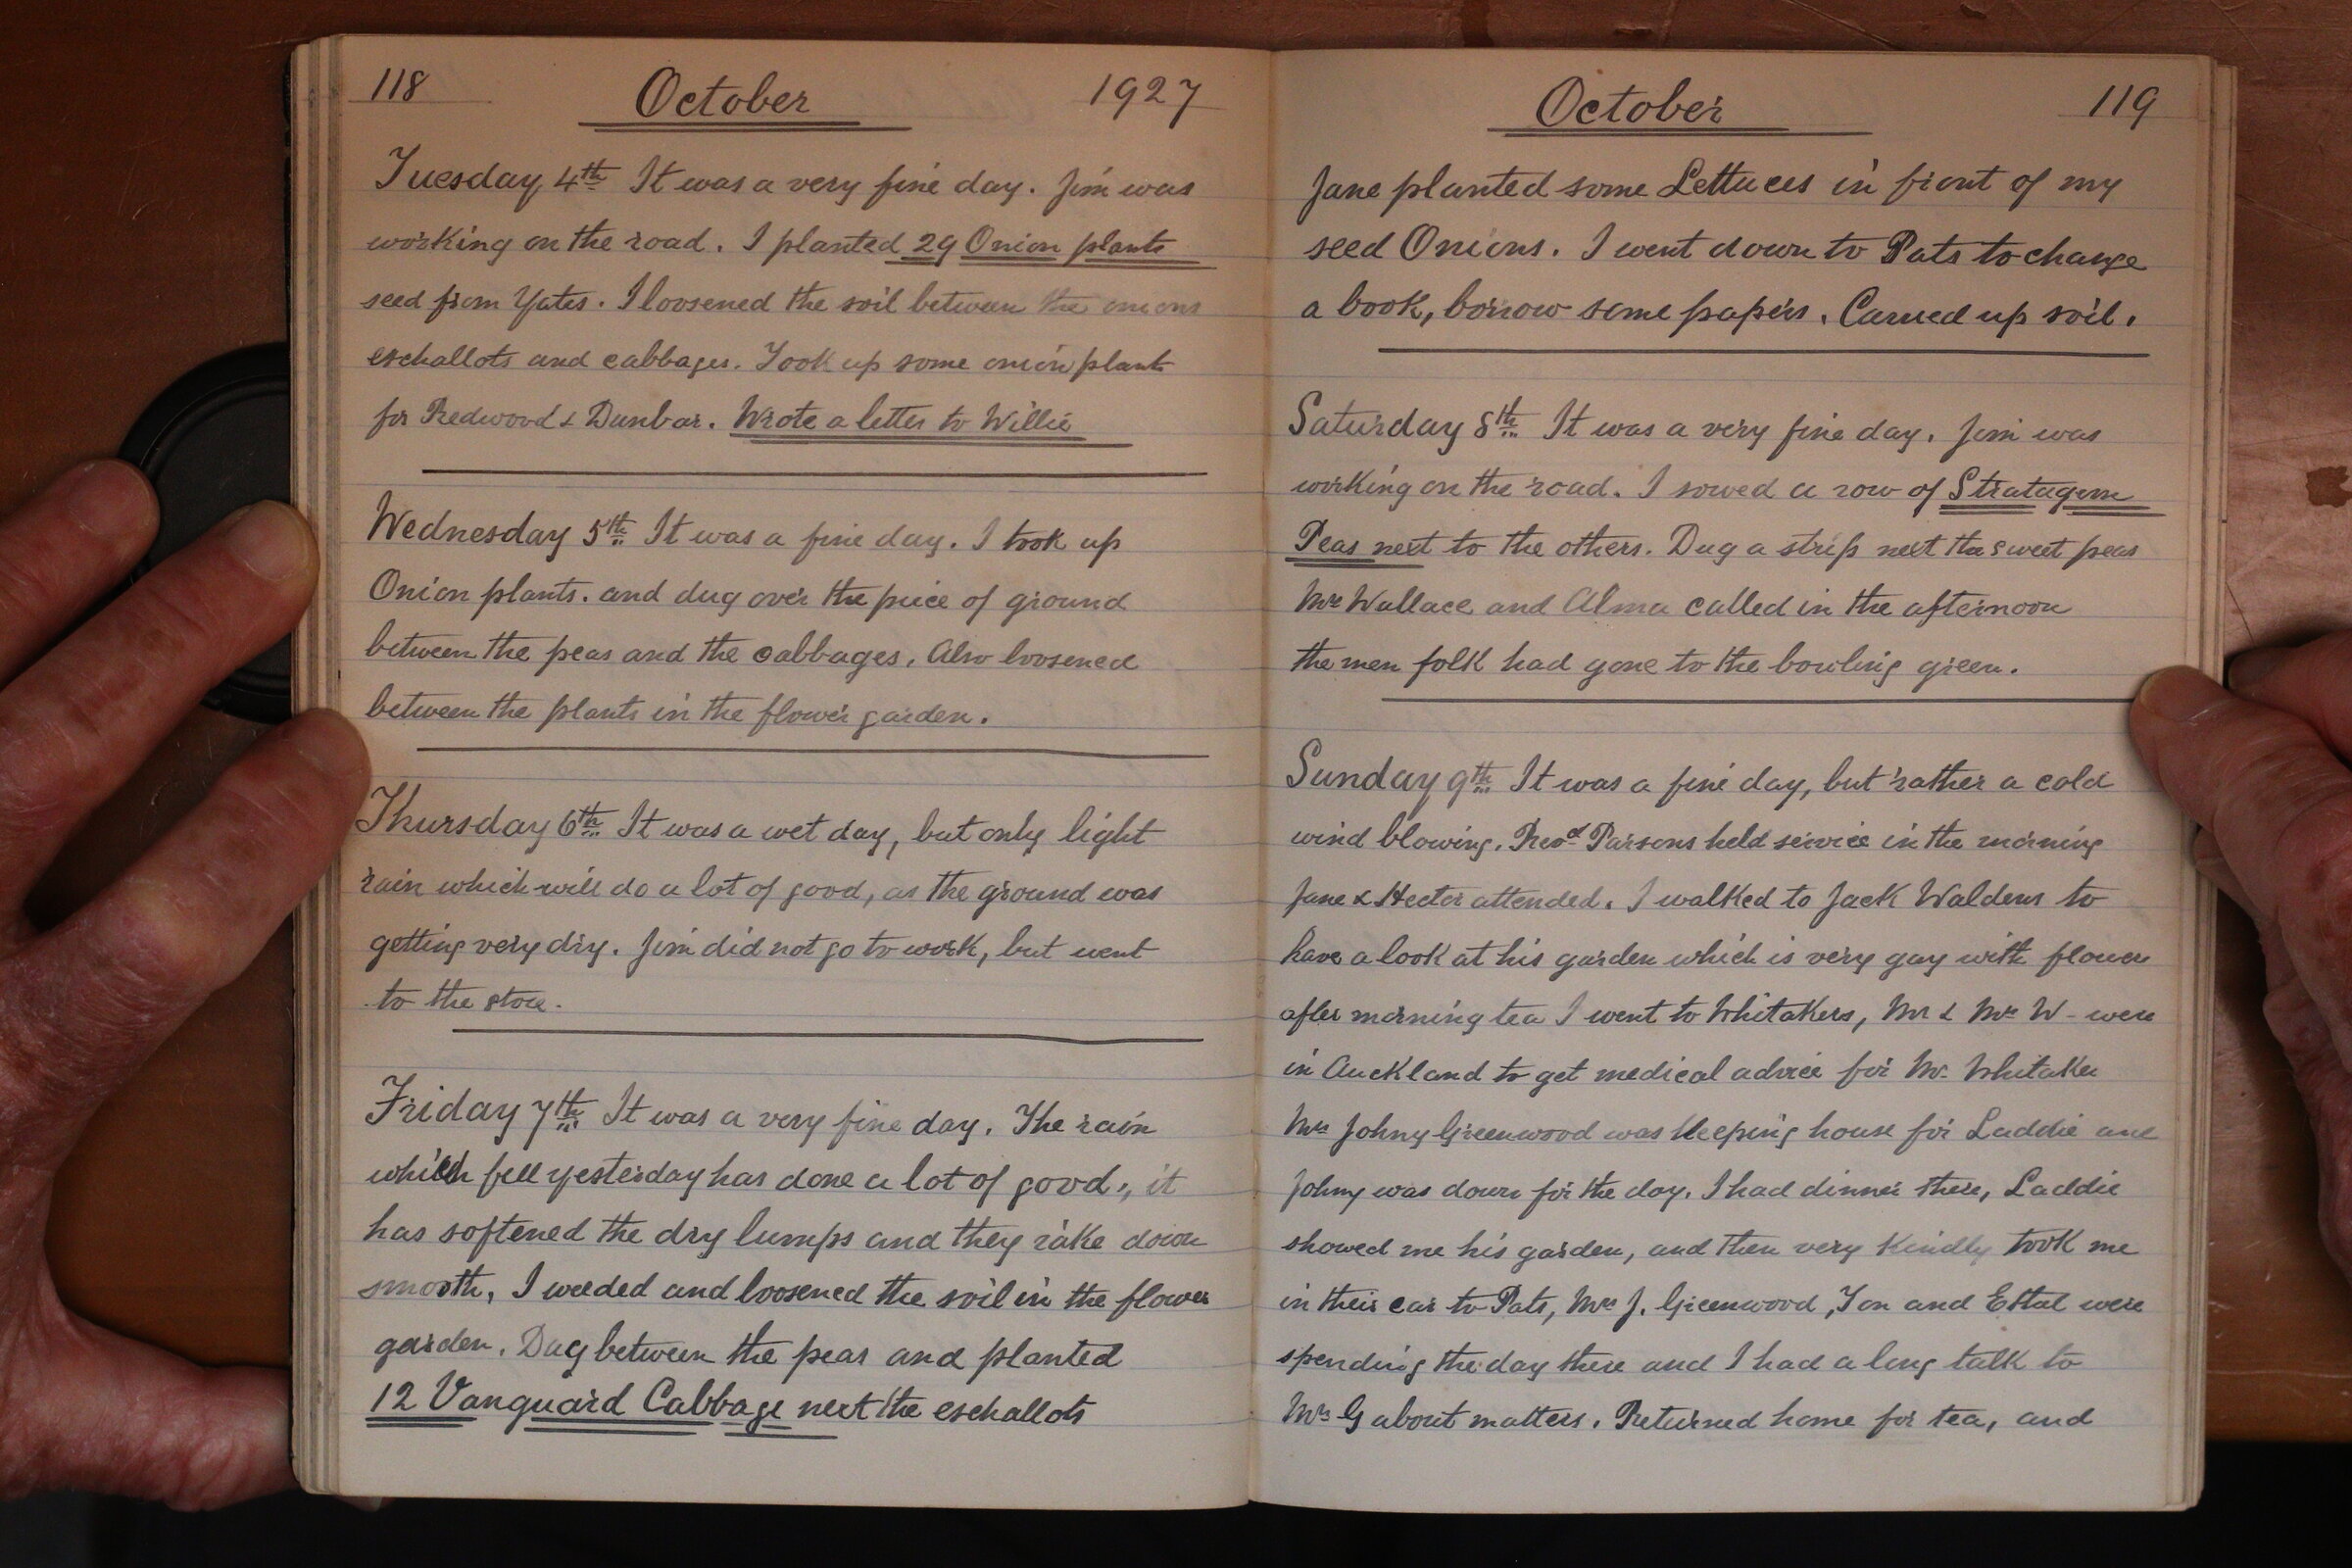 118 October 1927
Tuesday 4th It was a very fine day. Jim was
working on the road. I planted 29 Onion plants
seed from Yates. I loosened the soil between the onions
eschallots and cabbages. Took up some onion plants
for Redwood & Dunbar. Wrote a letter to Willie
Wednesday 5th It was a fine day. I took up
Onion plants. and dug over the piece of ground
between the peas and the cabbages. Also loosened
between the plants in the flower garden.
Thursday 6th It was a wet day, but only light
rain which will do a lot of good, as the ground was
getting very dry. Jim did not go to work, but went
to the store.
Friday 7th It was a very fine day. The rain
which fell yesterday has done a lot of good, it
has softened the dry lumps and they rake down
smooth, I weeded and loosened the soil in the flower
garden. Dug between the peas and planted
12 Vanguard Cabbage next the eschallots
October 119
Jane planted some Lettuces in front of my
seed Onions. I went down to Pats to change
a book, borrow some papers. Carried up soil.
Saturday 8th It was a very fine day. Jim was
working on the road. I sowed a row of Stratagem
Peas next to the others. Dug a strip next the sweet peas
Mrs Wallace and Alma called in the afternoon
the men folk had gone to the bowling green.
Sunday 9th It was a fine day, but rather a cold
wind blowing. Revd Parsons held service in the morning
Jane & Hector attended. I walked to Jack Waldens to
have a look at his garden which is very gay with flowers
after morning tea I went to Whitakers, Mr & Mrs W- were
in Auckland to get medical advice for Mr. Whitaker
Mrs Johny Greenwood was keeping house for Laddie and
Johny was down for the day. I had dinner there, Laddie
showed me his garden, and then very kindly took me
in their car to Pats, Mrs J. Greenwood, and were
spending the day there and I had a long talk to
Mrs G about matters. Returned home for tea, and